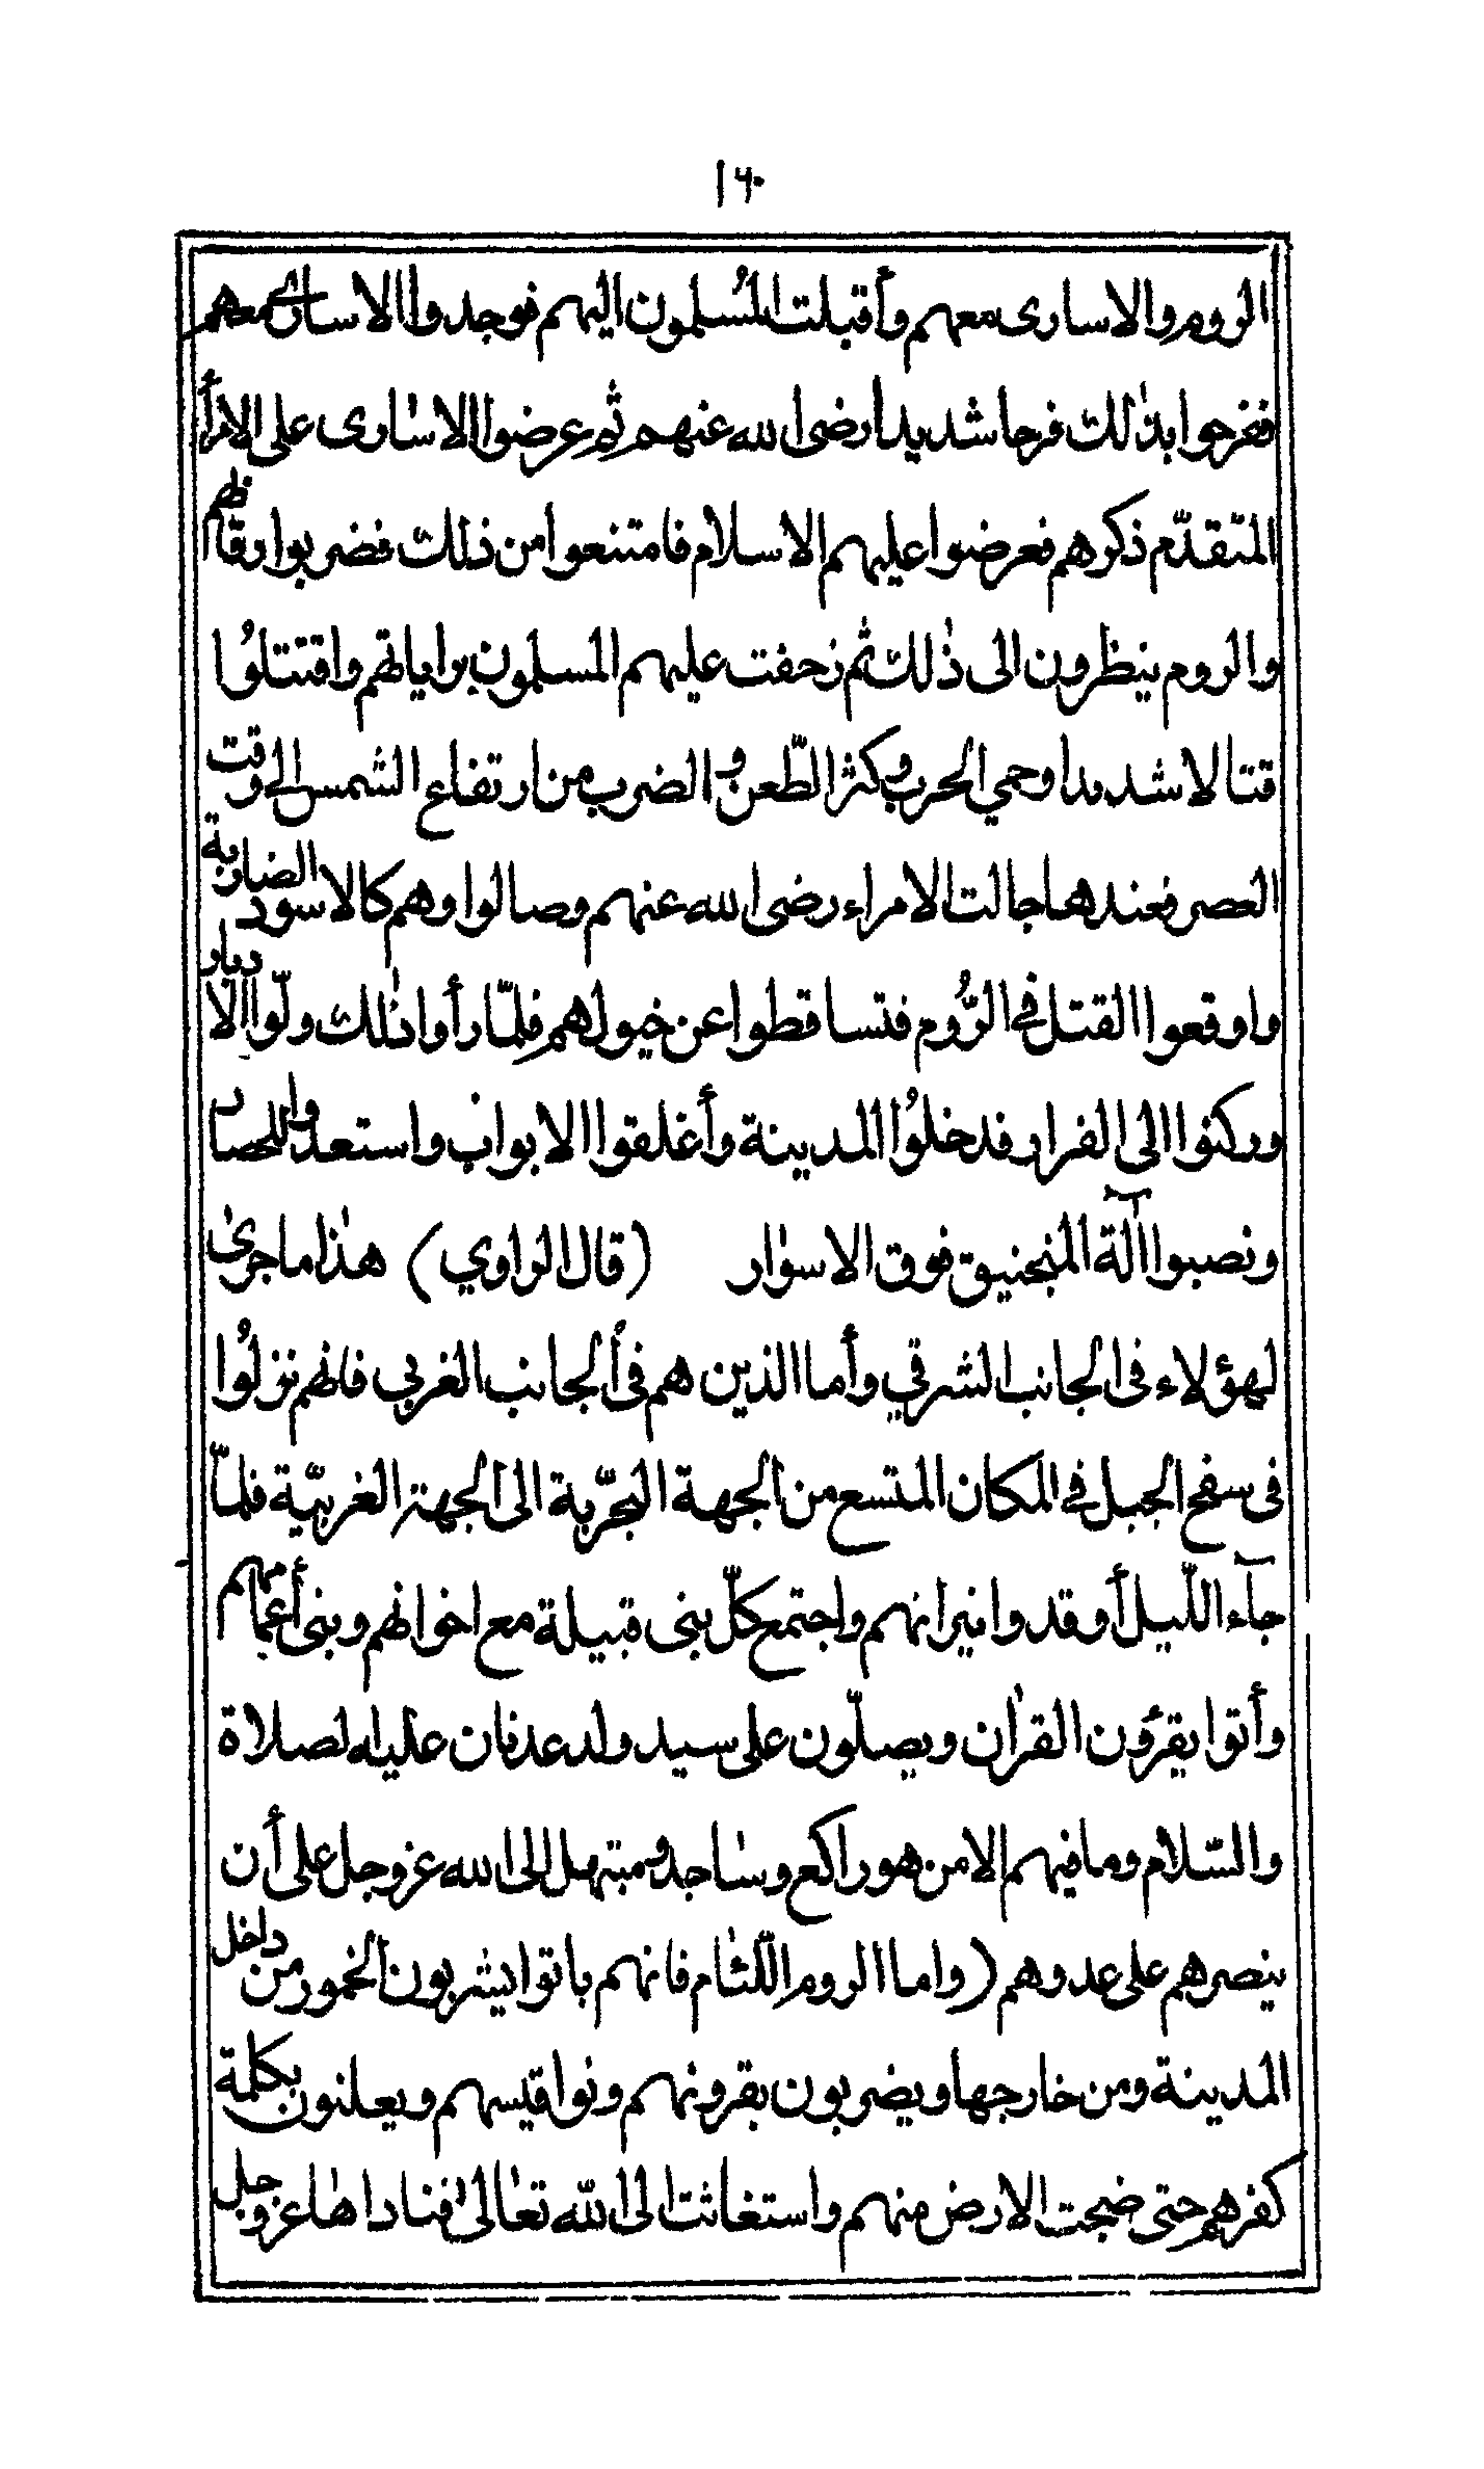 ١٦٠
الروم والاسارى معهم وأقبلت المُسلمون اليهم فوجدوا الاسارى معهم
ففرحوا بذٰلك فرحا شديدا رضى الله عنهم ثم عرضوا الاسٰارى على الامرأ
المتقدّم ذكرهم فعرضوا عليهم الاسلام فامتنعوا من ذلك فضربوا رقابهم
والروم ينظرون الى ذٰلك ثم زحفت عليهم المسلمون براياتهم واقتتلوُا
قتالا شديدا وحمي الحرب وكثر الطّعن والضرب من ارتفاع الشمس الى وقت
العصر فعندها جالت الامراء رضى الله عنهم وصالوا وهم كالاسود الضاربة
واوقعوا القتل في الرُّوم فتساقطوا عن خيولهم فلمّا رأوا ذٰلك ولّوا الادبار
وركنوا الى الفرار فدخلوُا المدينة وأغلقوا الابواب واستعدوا للحصار
ونصبوا آلة المنجنيق فوق الاسوٰار (قال الراوي) هذٰا ما جرىٰ
لهؤلاء فى الجانب الشرقي وأما الذين هم فى الجانب الغربي فانهم نزلوُا
فى سفح الجبل في المكان المتسع من الجهة البحّرية الى الجهة الغربيّة فلمّا
جآء اللّيل أوقدوا نيرانهم واجتمع كلّ بنى قبيلة مع اخوانهم وبنى أعمامهم
وأتوا يقرؤن القرٰان ويصلّون على سيد ولد عدنان عليه الصلاة
والسّلام وما فيهم الا من هو راكع وسٰاجد ومبتهل الى الله عز وجل على أن
ينصرهم على عدوهم (واما الروم اللّئام فانهم باتوا يشربون الخمور من داخل
المدينة ومن خارجها ويضربون بقرونهم ونواقيسهم ويعلنون بكلمة
كفرهم حتى ضجت الارض منهم واستغاثت الى اللّه تعٰالىٰ فناداها عز وجل